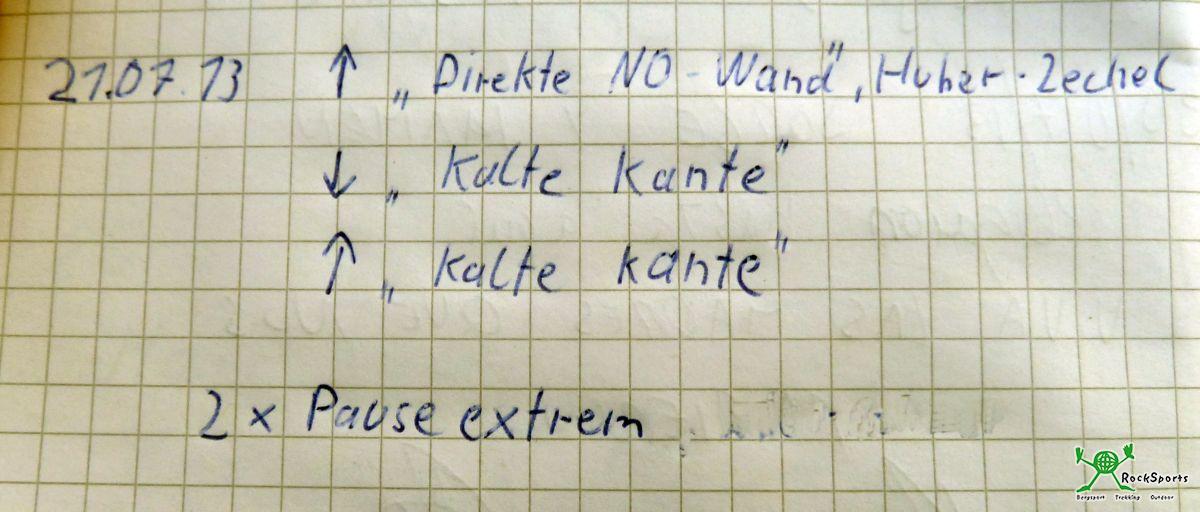 21.07.13 ↑ „Direkte NO-Wand", Huber-Zechel
↓ „Kalte Kante"
↑ „Kalte Kante"
2 x Pause extrem
RockSports
Bergsport Trekking Outdoor